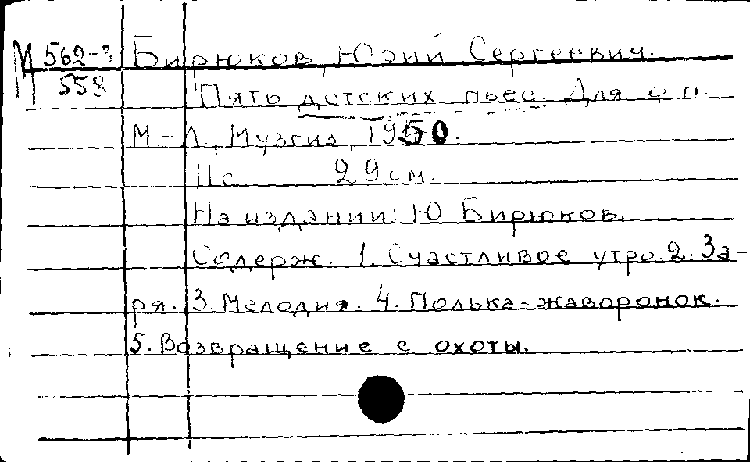 М 562-3 Бирюков, Юрий Сергеевич.
558 Пять детских пьес. Для ф п.
М-Л., Музгиз, 1950.
11 с 29 см.
На издании: Ю Бирюков.
Содерж. 1. Счастливое утро. 2. За-
ря. 3. Мелодия. 4. Полька-жаворонок.
5. Возвращение с охоты.